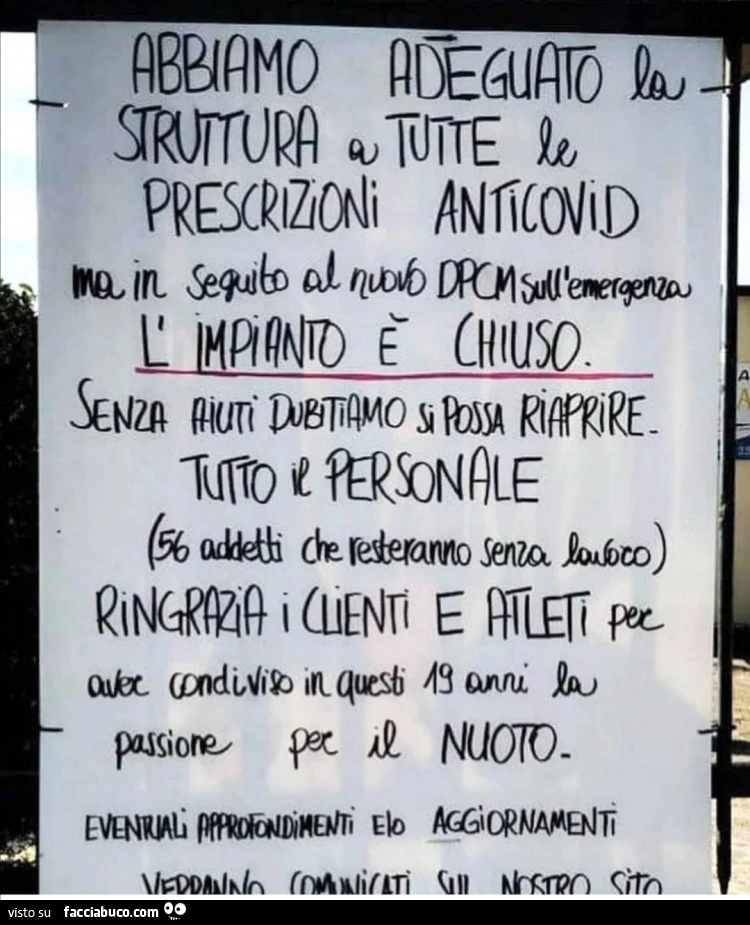 ABBIAMO ADEGUATO la
STRUTTURA a TUTTE le
PRESCRIZIONI ANTICOVID
ma in seguito al nuovo DPCM sull'emergenza
L'IMPIANTO È CHIUSO.
SENZA AIUTI DUBITIAMO SI POSSA RIAPRIRE-
TUTTO il PERSONALE
(56 addetti che resteranno senza lavoro)
RINGRAZIA i CLIENTI E ATLETI per
aver condiviso in questi 19 anni la
passione per il NUOTO-
EVENTUALI APPROFONDIMENTI E/o AGGIORNAMENTI
VERRANNO COMUNICATI SUL NOSTRO SITO
visto su facciabuco.com